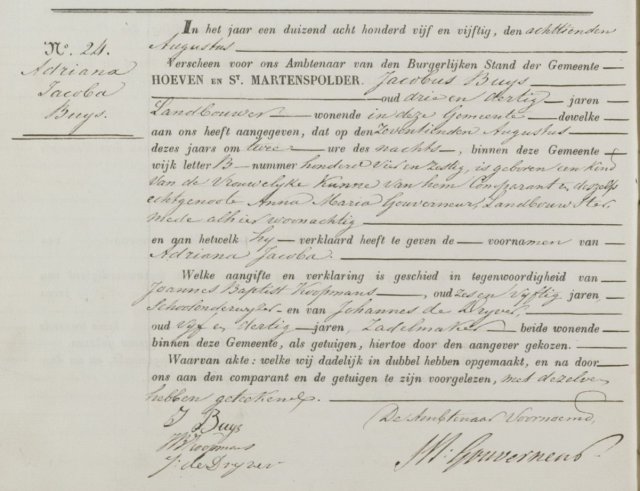 N.o 24.
Adriana
Jacoba
Buys.
In het jaar een duizend acht honderd vijf en vijftig, den achttienden
Augustus
Verscheen voor ons Ambtenaar van den Burgerlijken Stand der Gemeente
HOEVEN EN St. MARTENSPOLDER. Jacobus Buys
oud drie en dertig jaren
Landbouwer wonende in deze Gemeente dewelke
aan ons heeft aangegeven, dat op den Zeventienden Augustus
dezes jaars om twee ure des nachts, binnen deze Gemeente
wijk letter B nummer honderd vier en zestig, is geboren een kind
van de Vrouwelyke Kunne van hem Comparant en deszelfs
echtgenoote Anna Maria Gouverneur, Landbouwster
mede alhier woonachtig
en aan hetwelk hy verklaard heeft te geven de voornamen van
Adriana Jacoba.
Welke aangifte en verklaring is geschied in tegenwoordigheid van
Joannes Baptist Koopmans, oud zes en vyftig jaren
Schoolonderwyzer en van Johannes de Dryver,
oud vyf en dertig jaren, Zadelmaker beide wonende
binnen deze Gemeente, als getuigen, hiertoe door den aangever gekozen.
Waarvan akte: welke wij dadelijk in dubbel hebben opgemaakt, en na door
ons aan den comparant en de getuigen te zijn voorgelezen, met dezelve
hebben geteekend.
J Buys
Koopmans
J: de Dryver
De Ambtenaar Voornoemd,
Gouverneur